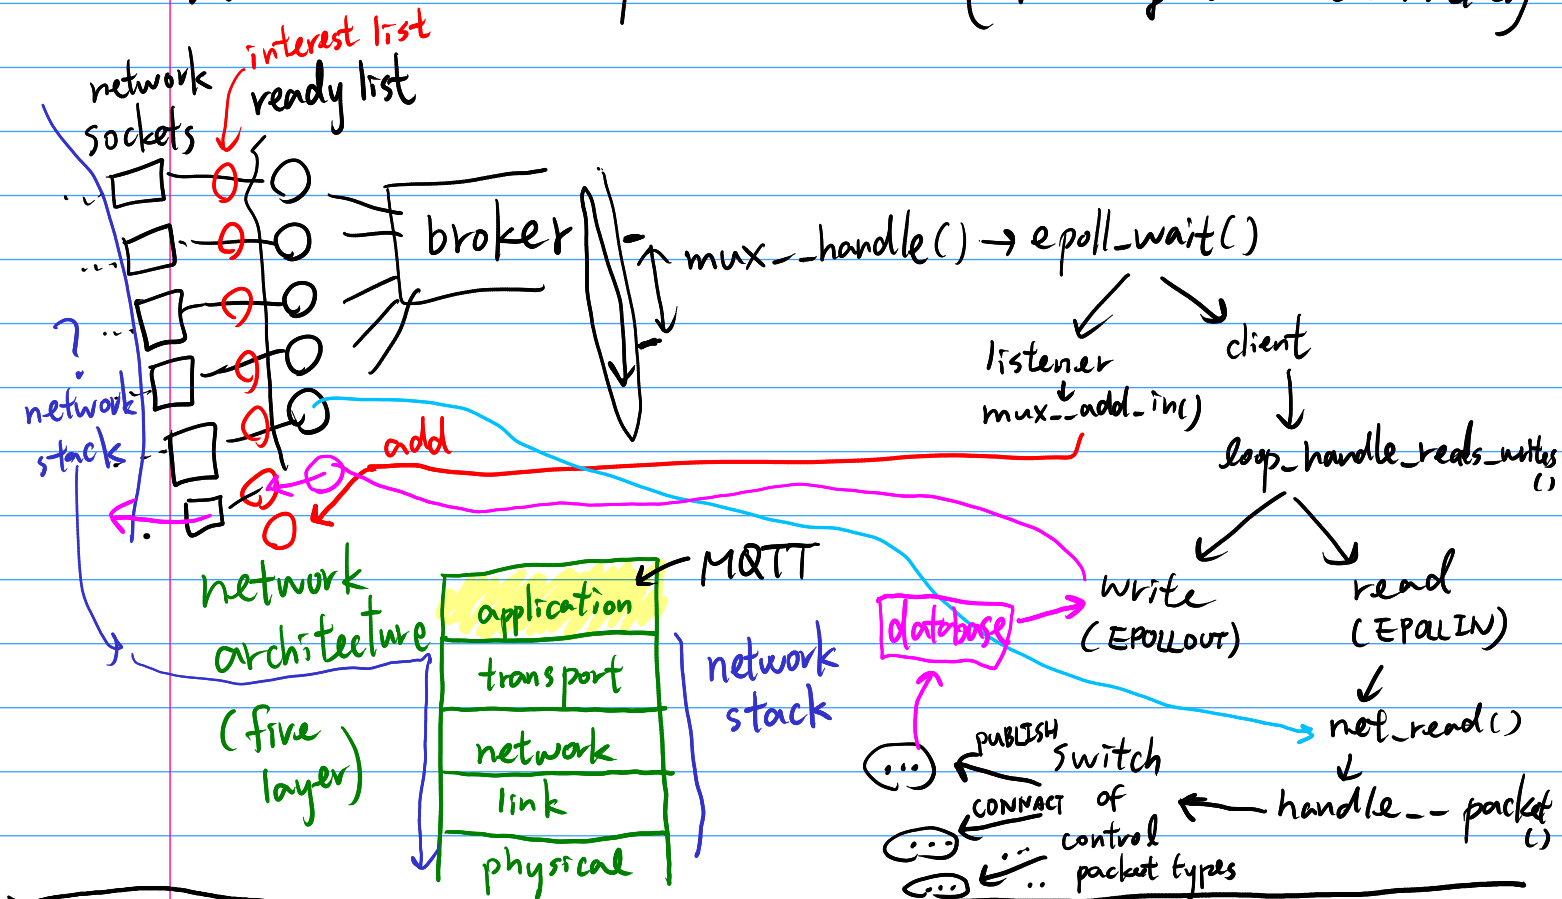 interest list
ready list
network
sockets
broker
mux__handle() → epoll_wait()
listener
client
mux__add_in()
loop_handle_reads_writes
()
?
network
stack
add
MQTT
network
architecture
(five
layer)
application
transport
network
link
physical
network
stack
database
write
(EPOLLOUT)
read
(EPOLLIN)
net_read()
handle__packet
()
switch
of
control
packet types
PUBLISH
CONNACT
...
...
...